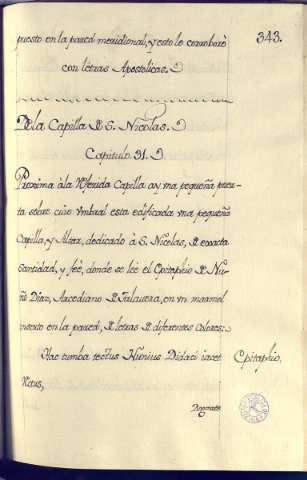 343.
puesto en la pared meridional, y esto lo corroboró
con letras Apostolicas.
De la Capilla de S. Nicolas.
Capitulo 31.
Proxima à la referida Capilla ay vna pequeña puer-
ta sobre cuio vmbral esta edificada vna pequeña
Capilla, y Altar, dedicado à S. Nicolas, de exacta
Santidad, y feè, donde se leè el Epitaphio de Nu-
ño Diaz, Arcediano de Talavera, en vn marmol
inserto en la pared, de letras de diferentes colores:
Hac tumba tectus Nunius Didaci iacet
Epitaphio.